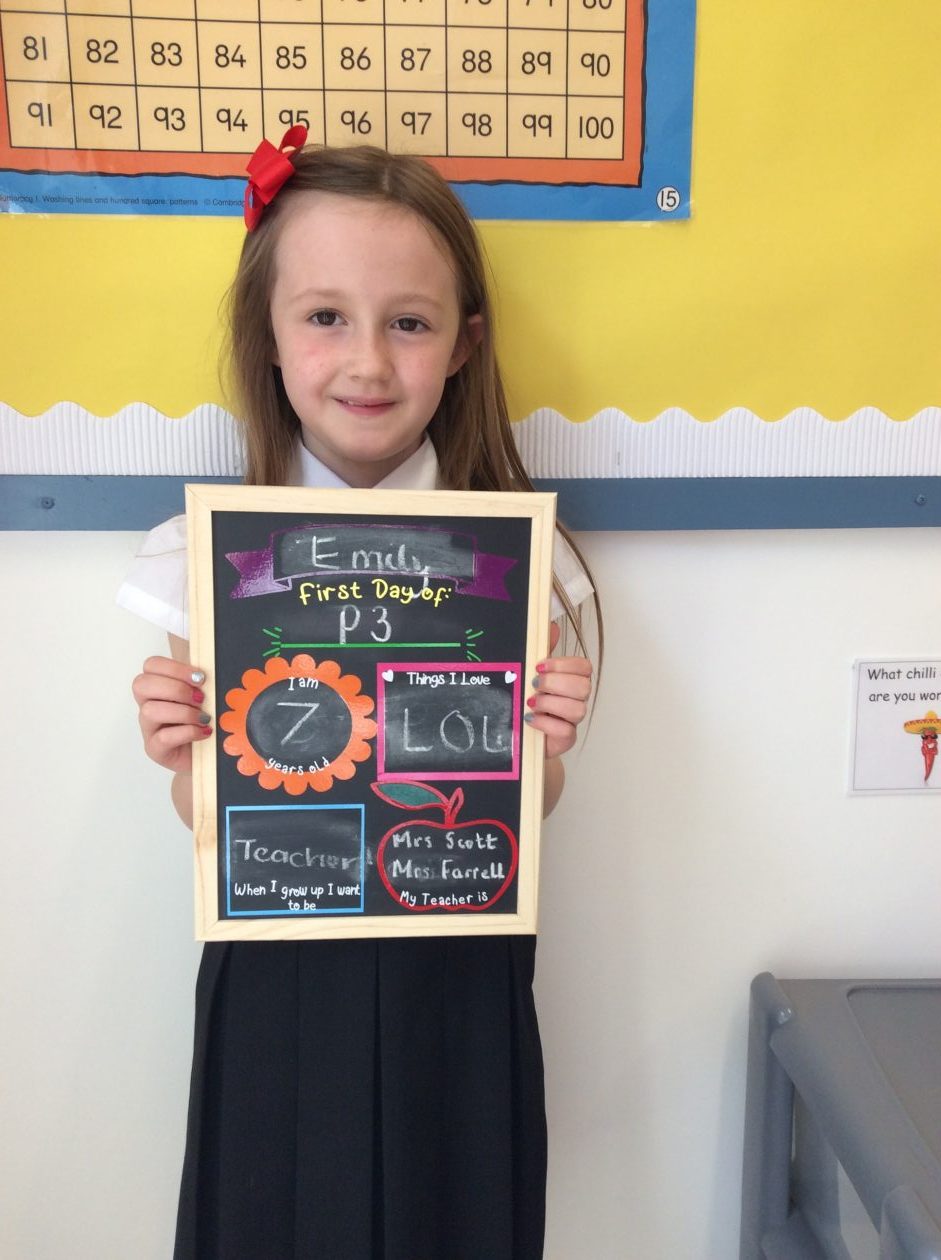 81 82 83 84 85 86 87 88 89 90
91 92 93 94 95 96 97 98 99 100
Washing lines and hundred square: patterns © Cambridg
15
Emily
First Day of:
P3
I am
7
years old
Things I Love
LOL
Teacher
When I grow up I want
to be
Mrs Scott
Mrs Farrell
My Teacher is
What chilli
are you wor